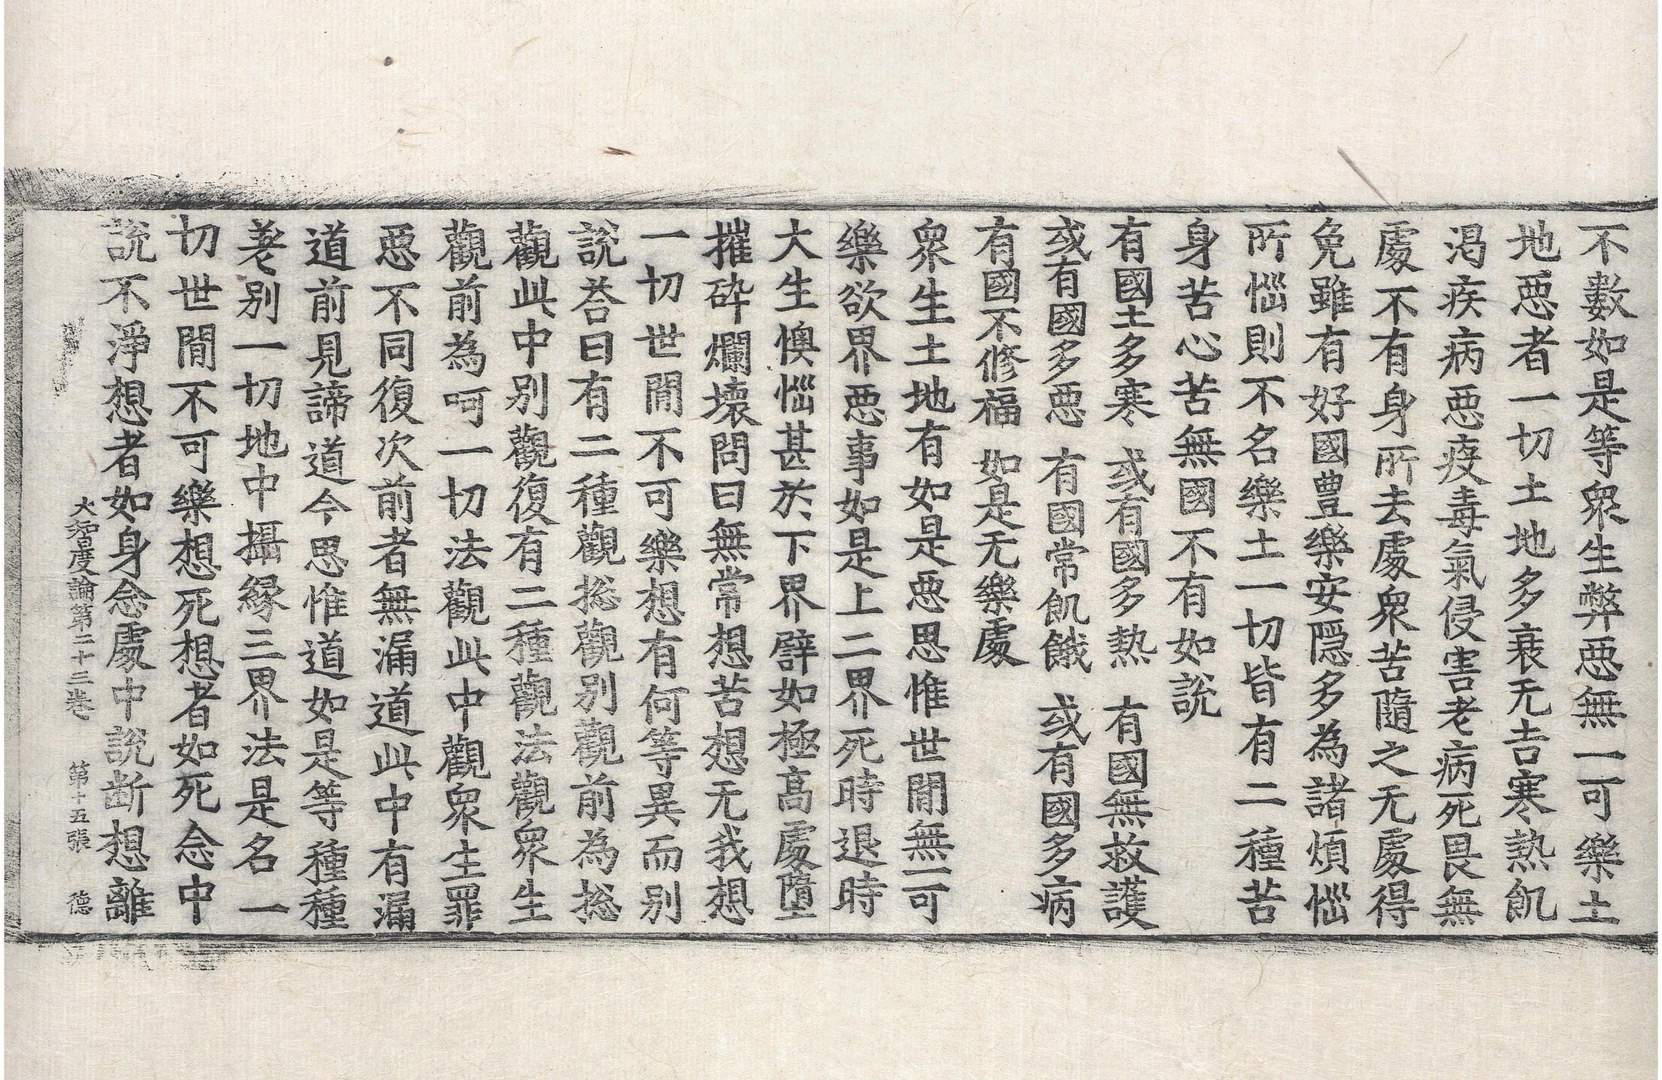 不數如是等衆生弊惡無一可樂土
地惡者一切土地多衰无吉寒熱飢
渴疾病惡疫毒氣侵害老病死畏無
處不有身所去處衆苦隨之无處得
免雖有好國豊樂安隱多為諸煩惱
所惱則不名樂土一切皆有二種苦
身苦心苦無國不有如說
有國土多寒　或有國多熱　有國無救護
或有國多惡　有國常飢餓　或有國多病
有國不修福　如是无樂處
衆生土地有如是惡思惟世間無一可
樂欲界惡事如是上二界死時退時
大生懊惱甚於下界譬如極高處墮
摧碎爛壞問曰無常想苦想无我想
一切世間不可樂想有何等異而別
說荅曰有二種觀捴觀別觀前為捴
觀此中別觀復有二種觀法觀衆生
觀前為呵一切法觀此中觀衆生罪
惡不同復次前者無漏道此中有漏
道前見諦道今思惟道如是等種種
差別一切地中攝縁三界法是名一
切世間不可樂想死想者如死念中
說不淨想者如身念處中說断想離
大智度論第二十三卷　第十五張　德